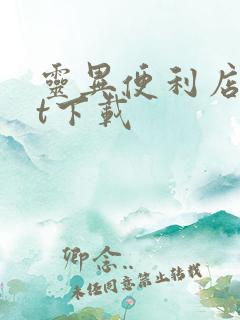 靈異便利店
t下載
卿念..
未经同意禁止转载